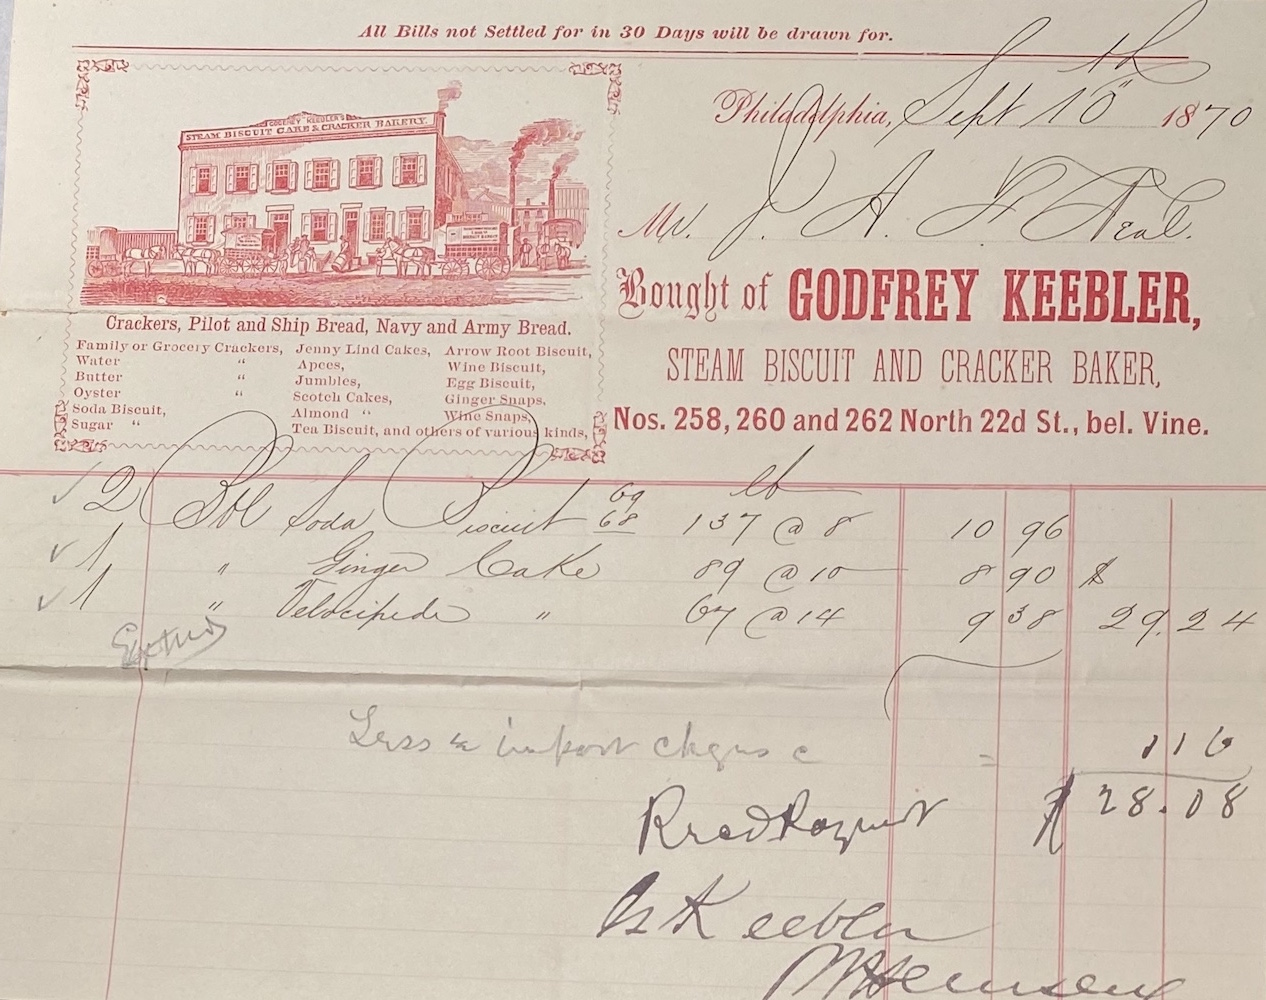 All Bills not Settled for in 30 Days will be drawn for.
GODFREY KEEBLER'S
STEAM BISCUIT CAKE & CRACKER BAKERY.
Philadelphia, Sept 10th 1870
Mr. J. A. F. Neal.
Bought of GODFREY KEEBLER,
STEAM BISCUIT AND CRACKER BAKER,
Nos. 258, 260 and 262 North 22d St., bel. Vine.
Crackers, Pilot and Ship Bread, Navy and Army Bread.
Family or Grocery Crackers, Jenny Lind Cakes, Arrow Root Biscuit,
Water " Apees, Wine Biscuit,
Butter " Jumbles, Egg Biscuit,
Oyster " Scotch Cakes, Ginger Snaps,
Soda Biscuit, Almond " Wine Snaps,
Sugar " Tea Biscuit, and others of various kinds,
✓ 2 Bbl Soda Biscuit 69 68 137 lb @ 8 10 96
✓ 1 " Ginger Cake 89 @ 10 8 90 $
✓ 1 " Velocipede " 67 @ 14 9 38 29.24
Less = 1 16
Recd Payment $ 28.08
G Keebler